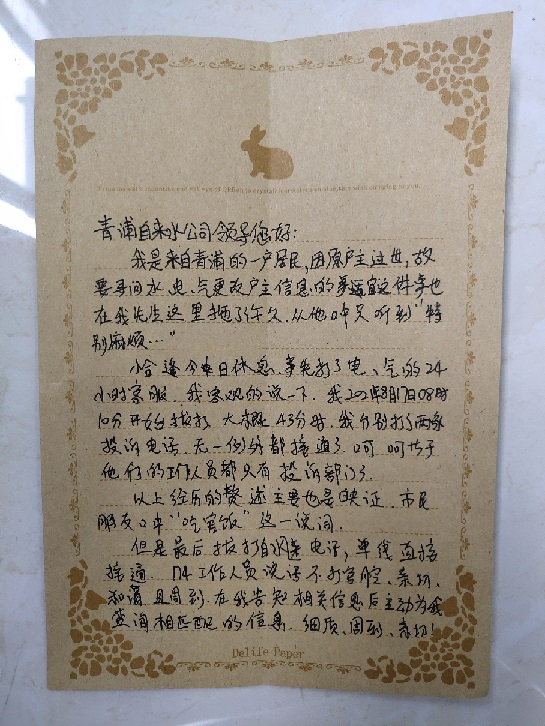 青浦自来水公司领导您好:
我是来自青浦的一户居民,因原户主过世,故
要更改水、电、气更改户主信息的事宜这件事也
在我先生这里拖了许久,从他口中只听到“特
别麻烦…”
恰逢今日休息,事先打了电、气的24
小时客服 我客观的说一下,我8月17日08时
10分开始拨打 大概43分时,我分别打了两家
投诉电话,无一例外都接通了 呵呵
他们的工作人员都只有投诉部门了.
以上经历的赘述主要也是映证 市民
朋友口中“吃官饭”这一说词.
但是最后拨打自来水电话,单线直接
接通 04工作人员说话不打官腔、亲切、
和谐且周到.在我告知相关信息后主动为我
查询相匹配的信息 细质、周到、亲切!
Delife Paper